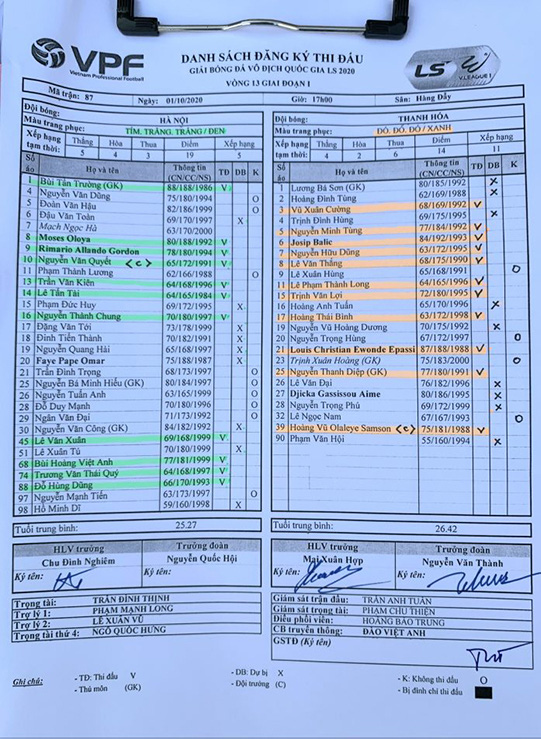 VPF
Vietnam Professional Football
DANH SÁCH ĐĂNG KÝ THI ĐẤU
GIẢI BÓNG ĐÁ VÔ ĐỊCH QUỐC GIA LS 2020
VÒNG 13 GIAI ĐOẠN I
LS V.LEAGUE 1
Mã trận: 87 Ngày: 01/10/2020 Giờ: 17h00 Sân: Hàng Đẫy
Đội bóng: HÀ NỘI
Màu trang phục: TÍM, TRẮNG, TRẮNG / ĐEN
Xếp hạng tạm thời: Thắng Hòa Thua Điểm Xếp hạng
5 4 3 19 5
Số áo Họ và tên Thông tin (CN/CC/NS) TĐ DB K
1 Bùi Tấn Trường (GK) 88/188/1986 V
4 Nguyễn Văn Dũng 75/180/1994 O
5 Đoàn Văn Hậu 82/186/1999 O
6 Đậu Văn Toàn 69/170/1997 X
7 Mạch Ngọc Hà 63/170/2000
8 Moses Oloya 80/188/1992 V
9 Rimario Allando Gordon 78/180/1994 V
10 Nguyễn Văn Quyết <c> 65/172/1991 V
11 Phạm Thành Lương 62/166/1988 O
13 Trần Văn Kiên 64/168/1996 V
14 Lê Tấn Tài 64/165/1984 V
15 Phạm Đức Huy X
16 Nguyễn Thành Chung 70/180/1997 V
17 Đặng Văn Tới 73/178/1999 X
18 Đinh Tiến Thành 70/182/1991 X
19 Nguyễn Quang Hải 65/168/1997 X
20 Faye Pape Omar 75/188/1987 X
21 Trần Đình Trọng 68/173/1997 O
25 Nguyễn Bá Minh Hiếu (GK) 80/184/1997 O
26 Nguyễn Tuấn Anh O
28 Đỗ Duy Mạnh 70/180/1996 O
29 Ngân Văn Đại O
30 Nguyễn Văn Công (GK) 84/182/1992 X
45 Lê Văn Xuân 69/168/1999 V
51 Lê Xuân Tú 70/180/1999 X
68 Bùi Hoàng Việt Anh 77/181/1999 V
74 Trương Văn Thái Quý 64/168/1997 V
88 Đỗ Hùng Dũng 66/170/1993 V
97 Nguyễn Mạnh Tiến 63/173/1997 O
98 Hồ Minh Dĩ 59/160/1998 X
Tuổi trung bình: 25.27
HLV trưởng Trưởng đoàn
Chu Đình Nghiêm Nguyễn Quốc Hội
Ký tên:
Đội bóng: THANH HÓA
Màu trang phục: ĐỎ, ĐỎ, ĐỎ / XANH
Xếp hạng tạm thời: Thắng Hòa Thua Điểm Xếp hạng
4 2 6 14 11
Số áo Họ và tên Thông tin (CN/CC/NS) TĐ DB K
1 Lương Bá Sơn (GK) 80/185/1992 X
2 Hoàng Đình Tùng X
3 Vũ Xuân Cường 68/169/1992 V
4 Trịnh Đình Hùng 69/175/1995 X
5 Nguyễn Minh Tùng 77/184/1992 V
6 Josip Balic 84/192/1993 V
7 Nguyễn Hữu Dũng V
8 Lê Văn Thắng 68/175/1990 V
9 Lê Xuân Hùng 65/168/1991 O
11 Lê Phạm Thành Long 64/165/1996 V
15 Trịnh Văn Lợi 72/180/1995 V
16 Hoàng Anh Tuấn 65/170/1996 X
17 Hoàng Thái Bình 63/172/1998 V
19 Nguyễn Vũ Hoàng Dương 70/175/1992 X
20 Nguyễn Trọng Hùng 67/172/1997 O
21 Louis Christian Ewonde Epassi 87/188/1988 V
23 Trịnh Xuân Hoàng (GK) O
25 Nguyễn Thanh Diệp (GK) 77/180/1991 V
26 Lê Văn Đại 76/182/1996 X
27 Djicka Gassissou Aime 80/186/1995 X
28 Nguyễn Trọng Phú 69/172/1999 X
32 Lê Ngọc Nam 67/167/1993 O
39 Hoàng Vũ Olaleye Samson <c> 75/181/1988 V
90 Phạm Văn Hội 55/160/1994 X
Tuổi trung bình: 26.42
HLV trưởng Trưởng đoàn
Mai Xuân Hợp Nguyễn Văn Thành
Ký tên:
Trọng tài: TRẦN ĐÌNH THỊNH
Trợ lý 1: PHẠM MẠNH LONG
Trợ lý 2: LÊ XUÂN VŨ
Trọng tài thứ 4: NGÔ QUỐC HƯNG
Giám sát trận đấu: TRẦN ANH TUẤN
Giám sát trọng tài: PHẠM CHU THIỆN
Điều phối viên: HOÀNG BẢO TRUNG
CB truyền thông: ĐÀO VIỆT ANH
GSTĐ (Ký tên)
Ghi chú: - TĐ: Thi đấu V - DB: Dự bị X - K: Không thi đấu O
- Thủ môn (GK) - Đội trưởng (C) - Bị đình chỉ thi đấu